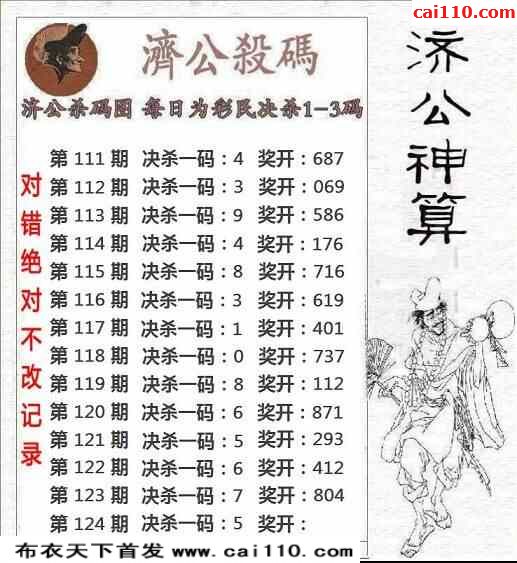 cai110.com
濟公殺碼
济公杀码图 每日为彩民决杀1-3码
第 111 期 决杀一码：4 奖开：687
第 112 期 决杀一码：3 奖开：069
第 113 期 决杀一码：9 奖开：586
第 114 期 决杀一码：4 奖开：176
第 115 期 决杀一码：8 奖开：716
第 116 期 决杀一码：3 奖开：619
第 117 期 决杀一码：1 奖开：401
第 118 期 决杀一码：0 奖开：737
第 119 期 决杀一码：8 奖开：112
第 120 期 决杀一码：6 奖开：871
第 121 期 决杀一码：5 奖开：293
第 122 期 决杀一码：6 奖开：412
第 123 期 决杀一码：7 奖开：804
第 124 期 决杀一码：5 奖开：
对错绝对不改记录
济公神算
布衣天下首发 www.cai110.com